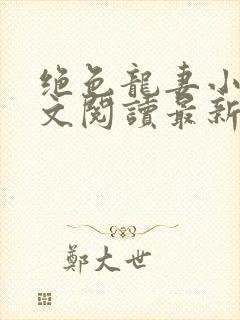 绝色龍妻小
文閱讀最新
鄭大世